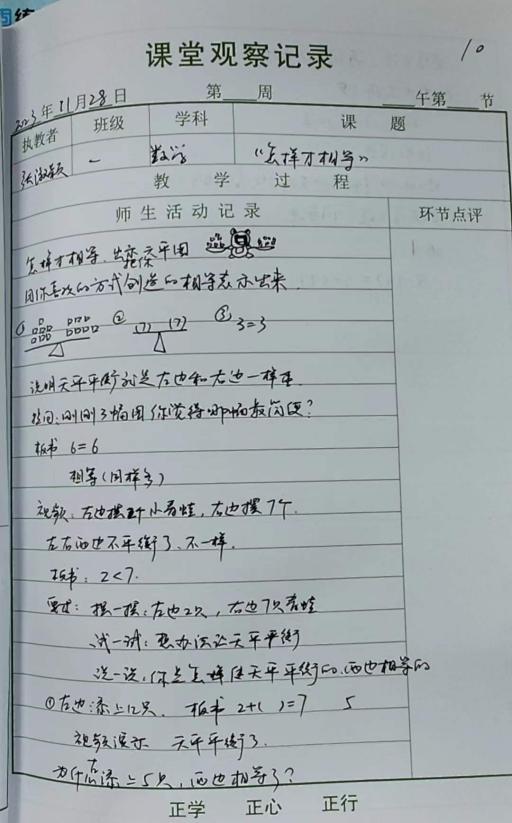 课堂观察记录
10
2023年11月28日 第 周 午第 节
执教者 班级 学科 课题
张淑颖 一 数学 “怎样才相等”
教学过程
师生活动记录 环节点评
怎样才相等. 出示天平图
用你喜欢的方式创造的相等表示出来.
① ② (7) (7) ③ 3=3
说明天平平衡就是左边和右边一样重
提问:刚刚3幅图你觉得哪幅最简便?
板书 6=6
相等(同样多)
视频:左边摆2个小青蛙,右边摆7个.
左右两边不平衡了、不一样.
板书:2<7.
要求:摆一摆:左边2只,右边7只青蛙
试一试:想办法让天平平衡
说一说,你是怎样使天平平衡的,两边相等的
①左边添上几只. 板书 2+( )=7 5
视频演示 天平平衡了.
为什么左添上5只,两边相等了?
正学 正心 正行